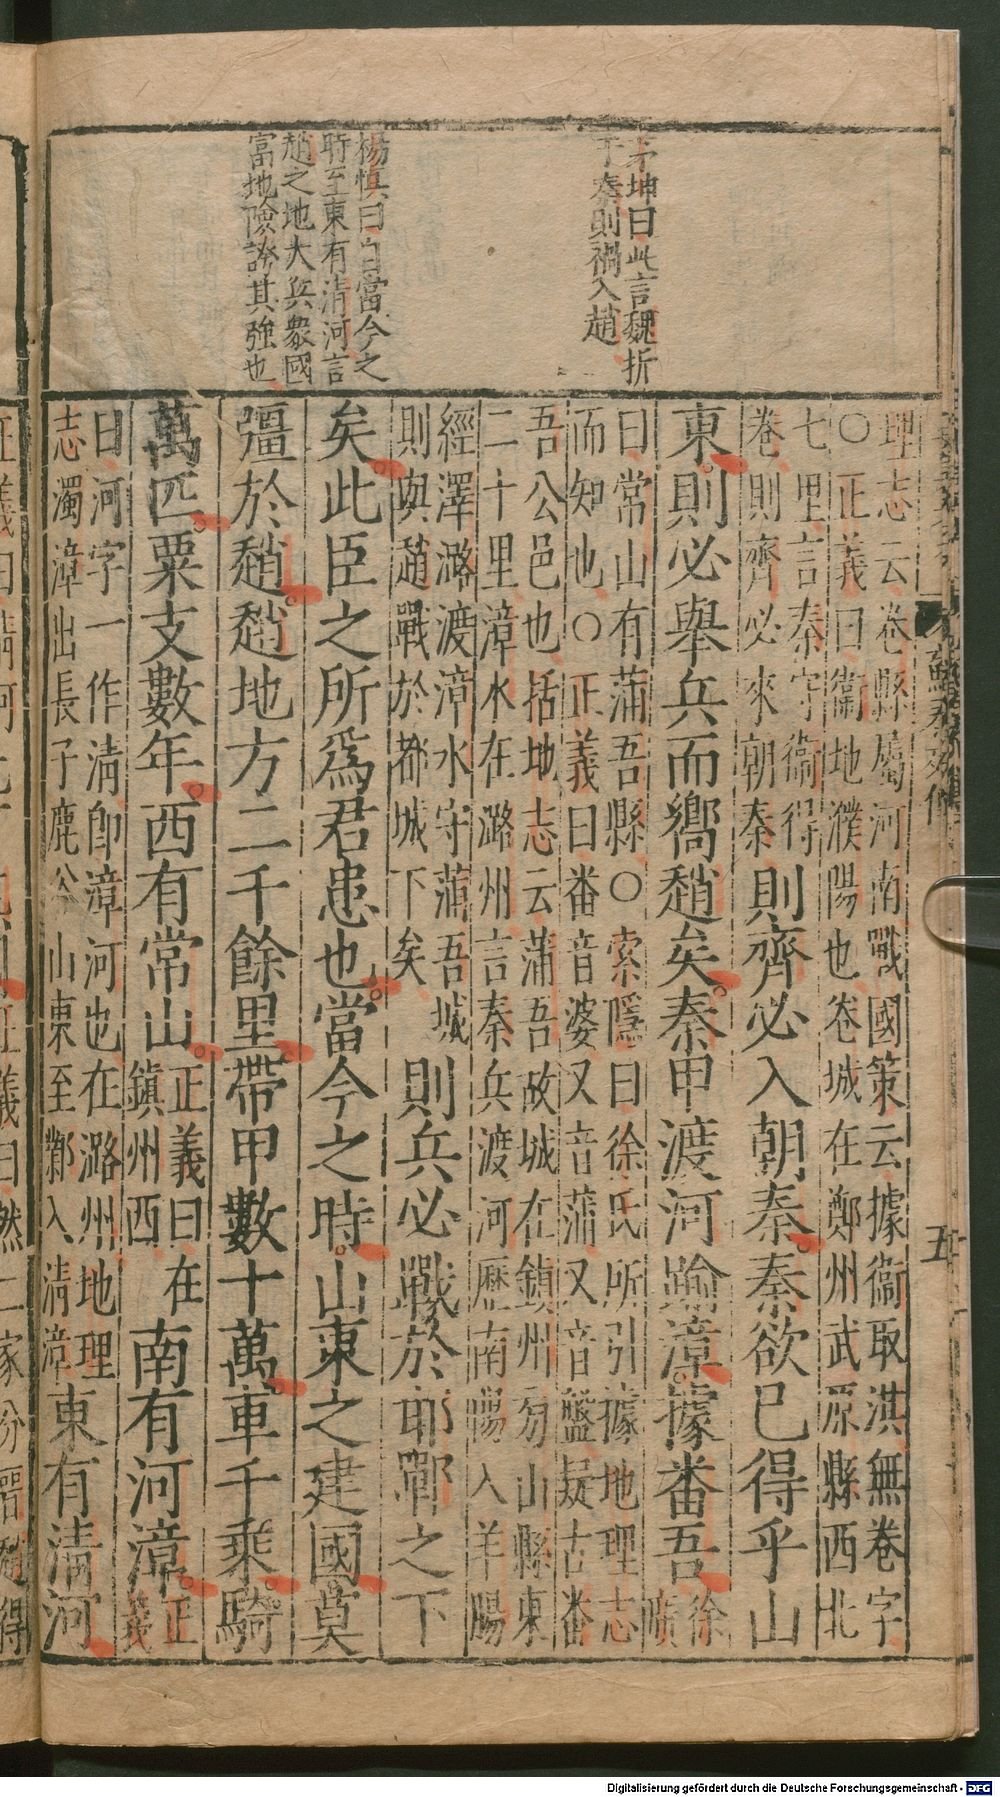 茅坤曰此言魏折
于秦則禍入趙
楊慎曰自當今之
時至東有清河言
趙之地大兵衆國
富地險誇其強也
理志云卷縣屬河南戰國策云據衞取淇無卷字
○正義曰衞地濮陽也卷城在鄭州武原縣西北
七里言秦守衞得
卷則齊必來朝秦
則齊必入朝秦秦欲已得乎山
東則必舉兵而嚮趙矣秦甲渡河踰漳據番吾
徐
廣
曰常山有蒲吾縣○索隱曰徐氏所引據地理志
而知也○正義曰番音婆又音蒲又音盤疑古番
吾公邑也括地志云蒲吾故城在鎮州房山縣東
二十里漳水在潞州言秦兵渡河歷南陽入羊腸
經澤潞渡漳水守蒲吾城
則與趙戰於都城下矣
則兵必戰於邯鄲之下
矣此臣之所爲君患也當今之時山東之建國莫
彊於趙趙地方二千餘里帶甲數十萬車千乘騎
萬匹粟支數年西有常山
正義曰在
鎮州西
南有河漳
正
義
曰河字一作清卽漳河也在潞州地理
志濁漳出長子鹿谷山東至鄴入清漳
東有清河
五
Digitalisierung gefördert durch die Deutsche Forschungsgemeinschaft - DFG